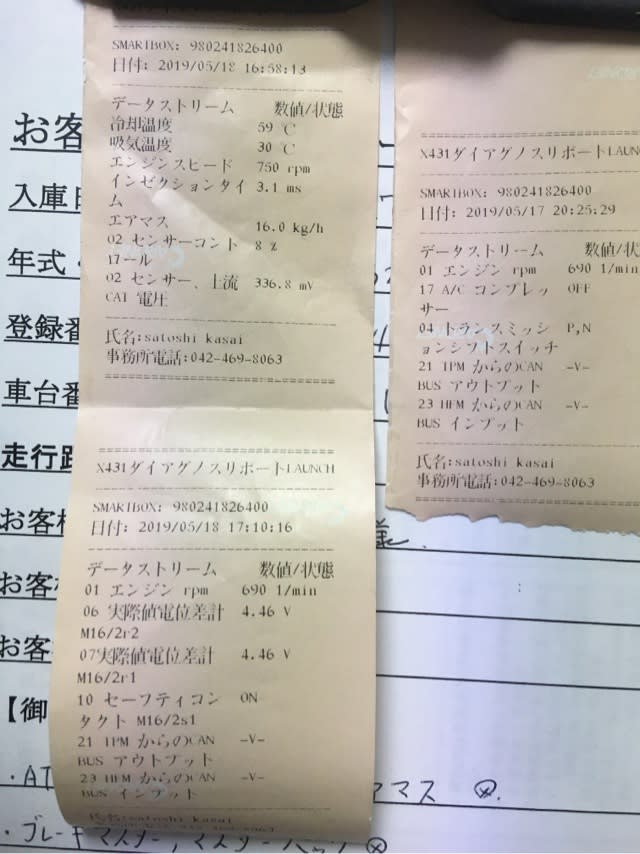 SMARTBOX: 980241826400
日付: 2019/05/18 16:58:13
データストリーム 数値/状態
冷却温度 59 ℃
吸気温度 30 ℃
エンジンスピード 750 rpm
インゼクションタイ 3.1 ms
ム
エアマス 16.0 kg/h
O2 センサーコント 8 %
ロール
O2 センサー、上流 336.8 mV
CAT 電圧
氏名:satoshi kasai
事務所電話:042-469-8063
X431ダイアグノスリポートLAUNCH
SMARTBOX: 980241826400
日付: 2019/05/18 17:10:16
データストリーム 数値/状態
01 エンジン rpm 690 1/min
06 実際値電位差計 4.46 V
M16/2r2
07実際値電位差計 4.46 V
M16/2r1
10 セーフティコン ON
タクト M16/2s1
21 TPM からのCAN -V-
BUS アウトプット
23 HFM からのCAN -V-
BUS インプット
氏名:satoshi kasai
X431ダイアグノスリポートLAUN
SMARTBOX: 980241826400
日付: 2019/05/17 20:25:29
データストリーム 数値/状
01 エンジン rpm 690 1/min
17 A/C コンプレッ OFF
サー
04 トランスミッシ P,N
ョンシフトスイッチ
21 TPM からのCAN -V-
BUS アウトプット
23 HFM からのCAN -V-
BUS インプット
氏名:satoshi kasai
事務所電話:042-469-8063
お客
入庫日
年式・
登録番
車台番
走行距
お客様
お客様
お客
【御
・AT マス ⊗.
・ブレーキマスター,マスターバック ⊗